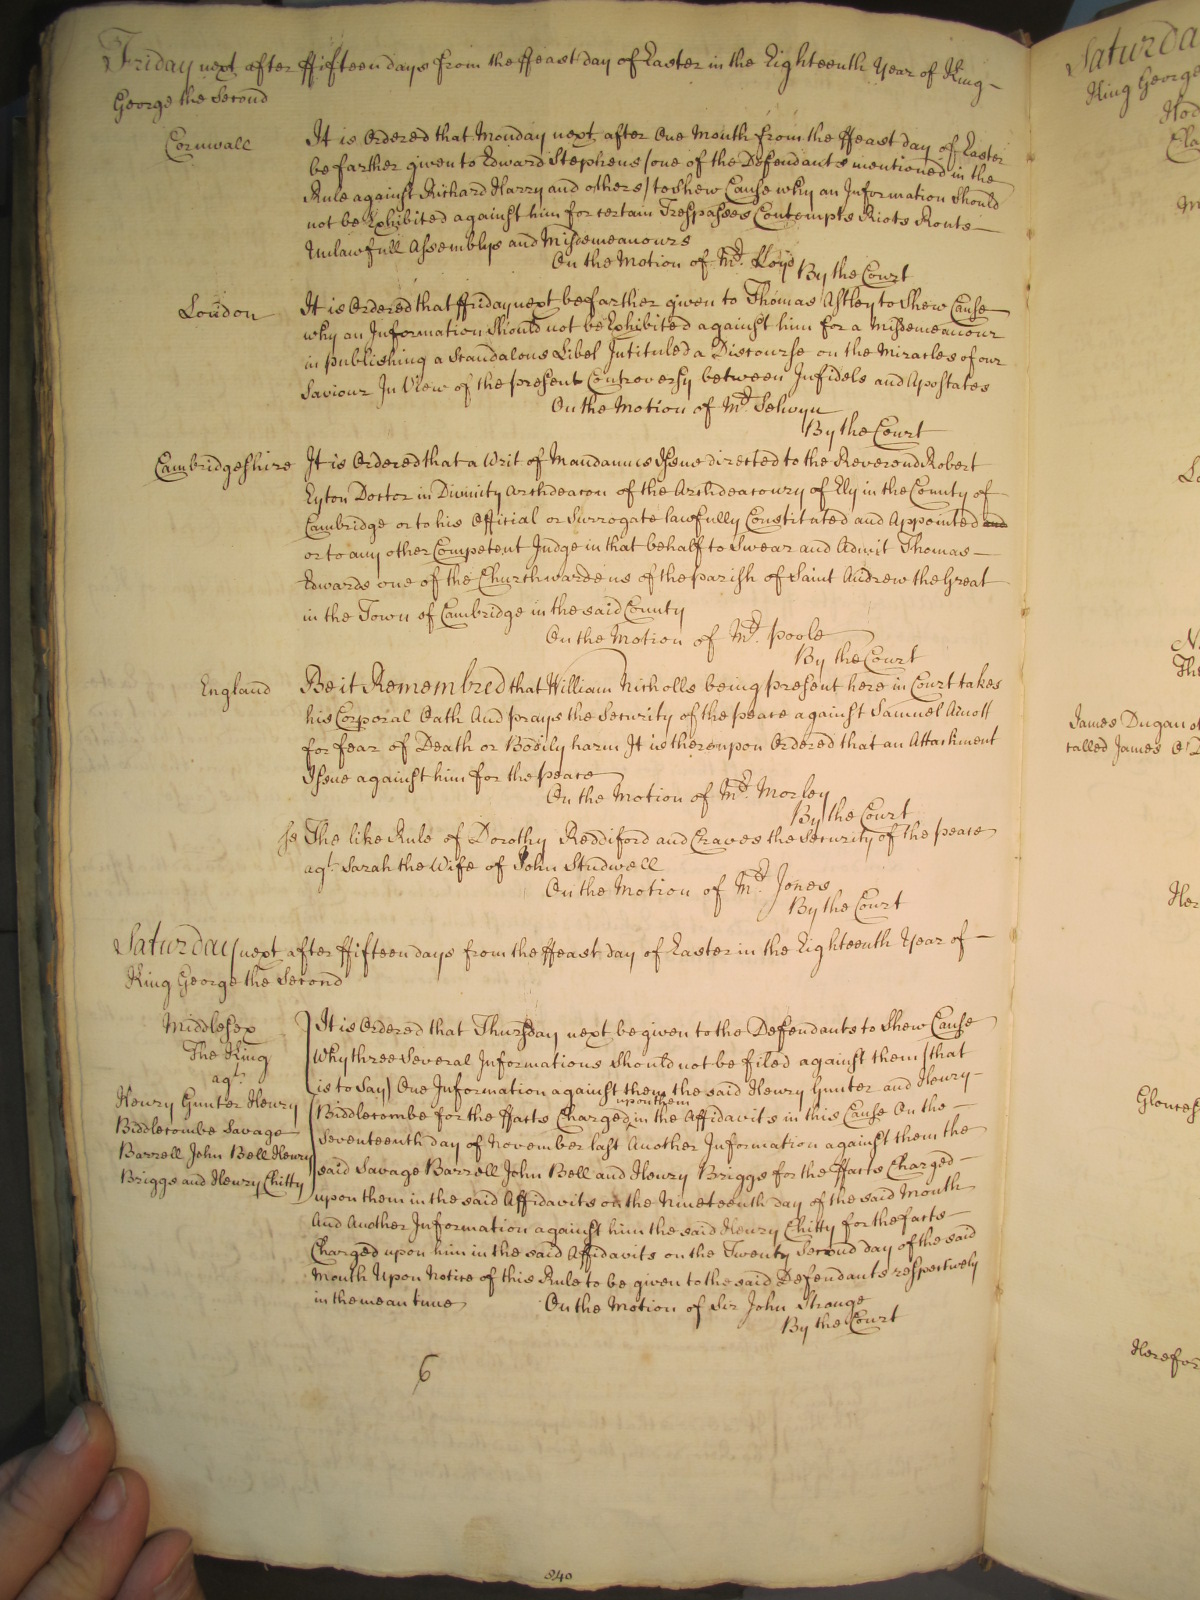 Friday next after ffifteen days from the ffeast day of Easter in the Eighteenth Year of King
George the Second
Cornwall
It is Ordered that Monday next after One Month from the ffeast day of Easter
be farther given to Edward Stephens (one of the Defendants mentioned in the
Rule against Richard Harry and others) to shew Cause why an Information should
not be Exhibited against him for certain Trespasses Contempts Riots Routs
Unlawfull Assemblys and Misdemeanours
On the Motion of Mr. Lloyd
By the Court
London
It is Ordered that ffriday next be farther given to Thomas Astley to Shew Cause
why an Information Should not be Exhibited against him for a Misdemeanour
in publishing a Scandalous Libel Intituled a Discourse on the Miracles of our
Saviour In View of the present Controversy between Infidels and Apostates
On the Motion of Mr. Selwyn
By the Court
Cambridgeshire
It is Ordered that a Writ of Mandamus Issue directed to the Reverend Robert
Eyton Doctor in Divinity Archdeacon of the Archdeaconry of Ely in the County of
Cambridge or to his Official or Surrogate lawfully Constituted and Appointed and
or to any other Competent Judge in that behalf to Swear and Admit Thomas
Edwards one of the Churchwardens of the parish of Saint Andrew the Great
in the Town of Cambridge in the said County
On the Motion of Mr. Poole
By the Court
England
Be it Remembred that William Nicholls being present here in Court takes
his Corporal Oath And prays the Security of the peace against Samuel Arnott
for fear of Death or Bodily harm It is thereupon Ordered that an Attachment
Issue against him for the peace
On the Motion of Mr. Morley
By the Court
ss The like Rule of Dorothy Reddiford and Craves the Security of the peace
agt. Sarah the Wife of John Studwell
On the Motion of Mr. Jones
By the Court
Saturday next after ffifteen days from the ffeast day of Easter in the Eighteenth Year of
King George the Second
Middlesex
The King
agt.
Henry Gunter Henry
Biddlecombe Savage
Barrell John Bell Henry
Briggs and Henry Chitty
It is Ordered that Thursday next be given to the Defendants to Shew Cause
Why three Several Informations Should not be filed against them (that
is to Say) One Information against them the said Henry Gunter and Henry
Biddlecombe for the ffacts Charged upon them in the Affidavits in this Cause On the
Seventeenth day of November last Another Information against them the
said Savage Barrell John Bell and Henry Briggs for the ffacts Charged
upon them in the said Affidavits on the Nineteenth day of the said Month
And Another Information against him the said Henry Chitty for the facts
Charged upon him in the said Affidavits on the Twenty Second day of the said
Month Upon Notice of this Rule to be given to the said Defendants respectively
in the mean time
On the Motion of Sir John Strange
By the Court
6
840
Saturda
King George
James Dugan
called James
Glouces
Herefor